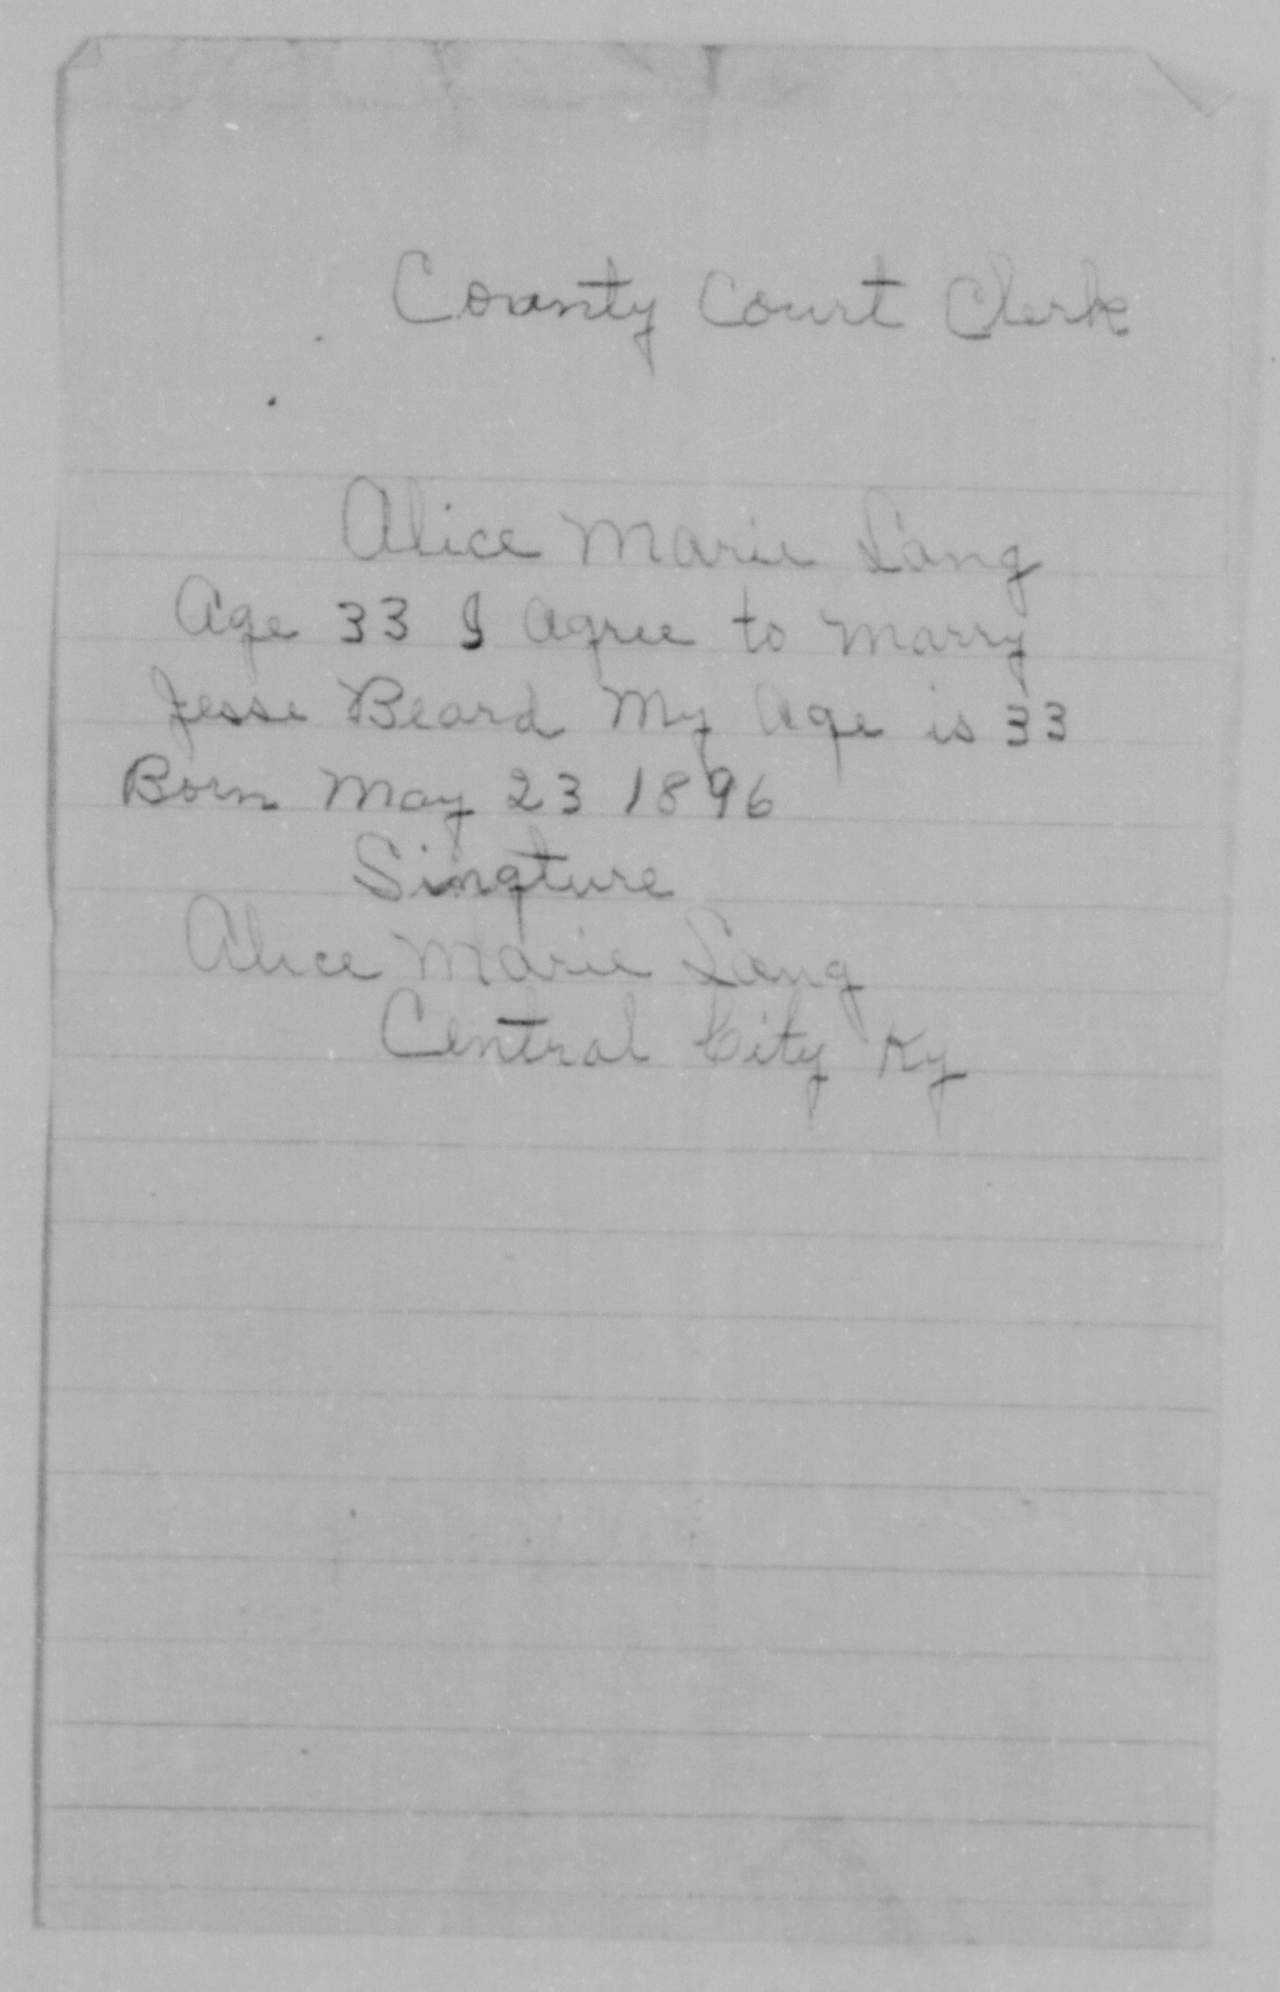 County Court Clerk
Alice Marie Lang
Age 33 I agree to marry
Jesse Beard My Age is 33
Born May 23 1896
Singture
Alice Marie Lang
Central City Ky